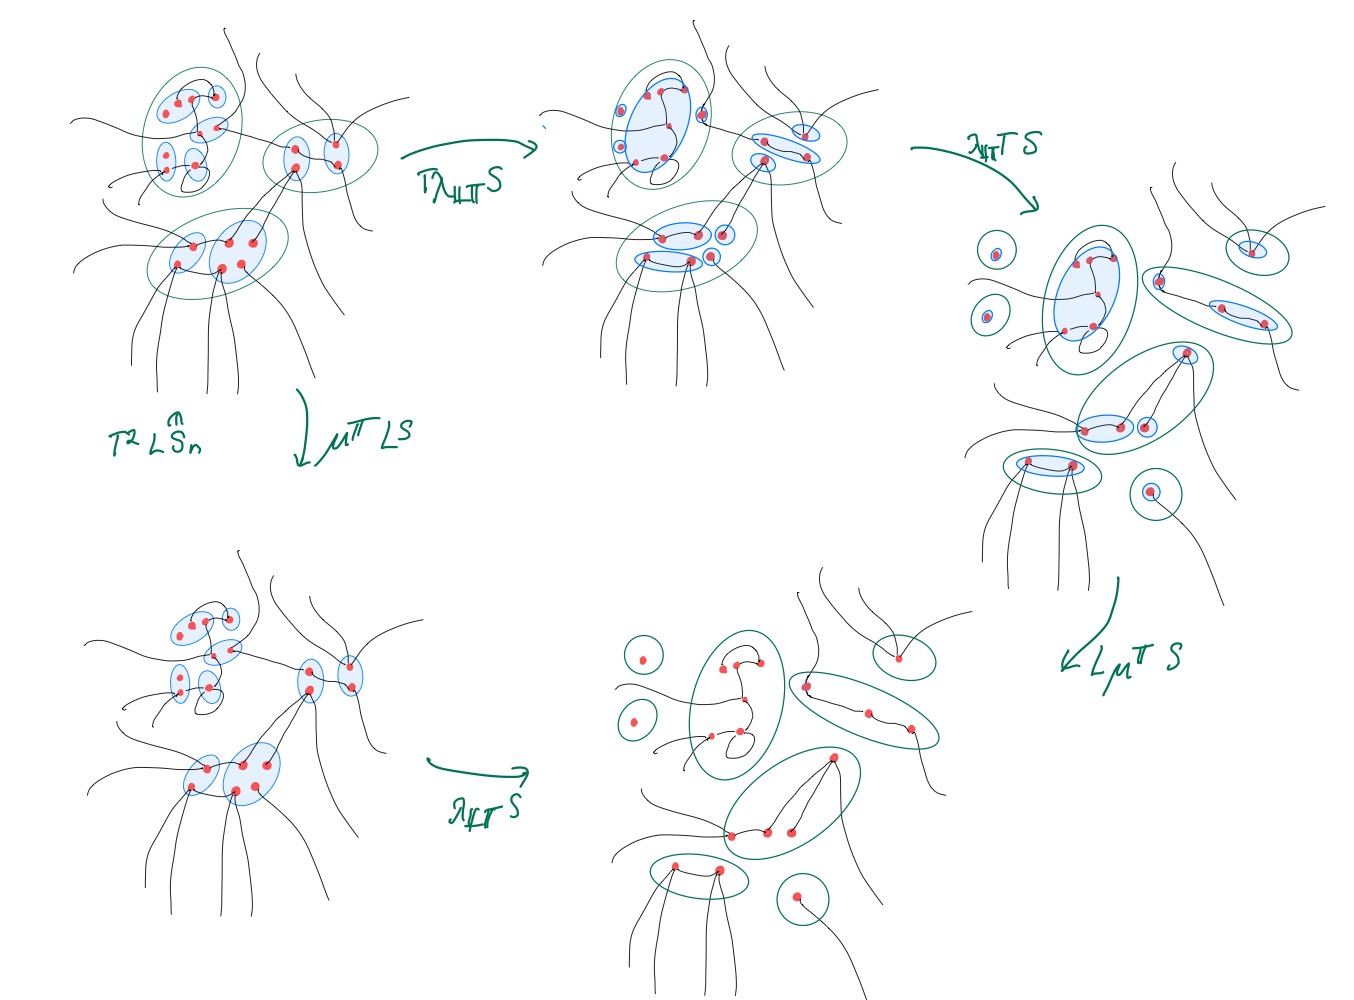 Tλ𝕃𝕋S
λ𝕃𝕋TS
T²LSn
μ𝕋LS
Lμ𝕋S
λ𝕃𝕋S